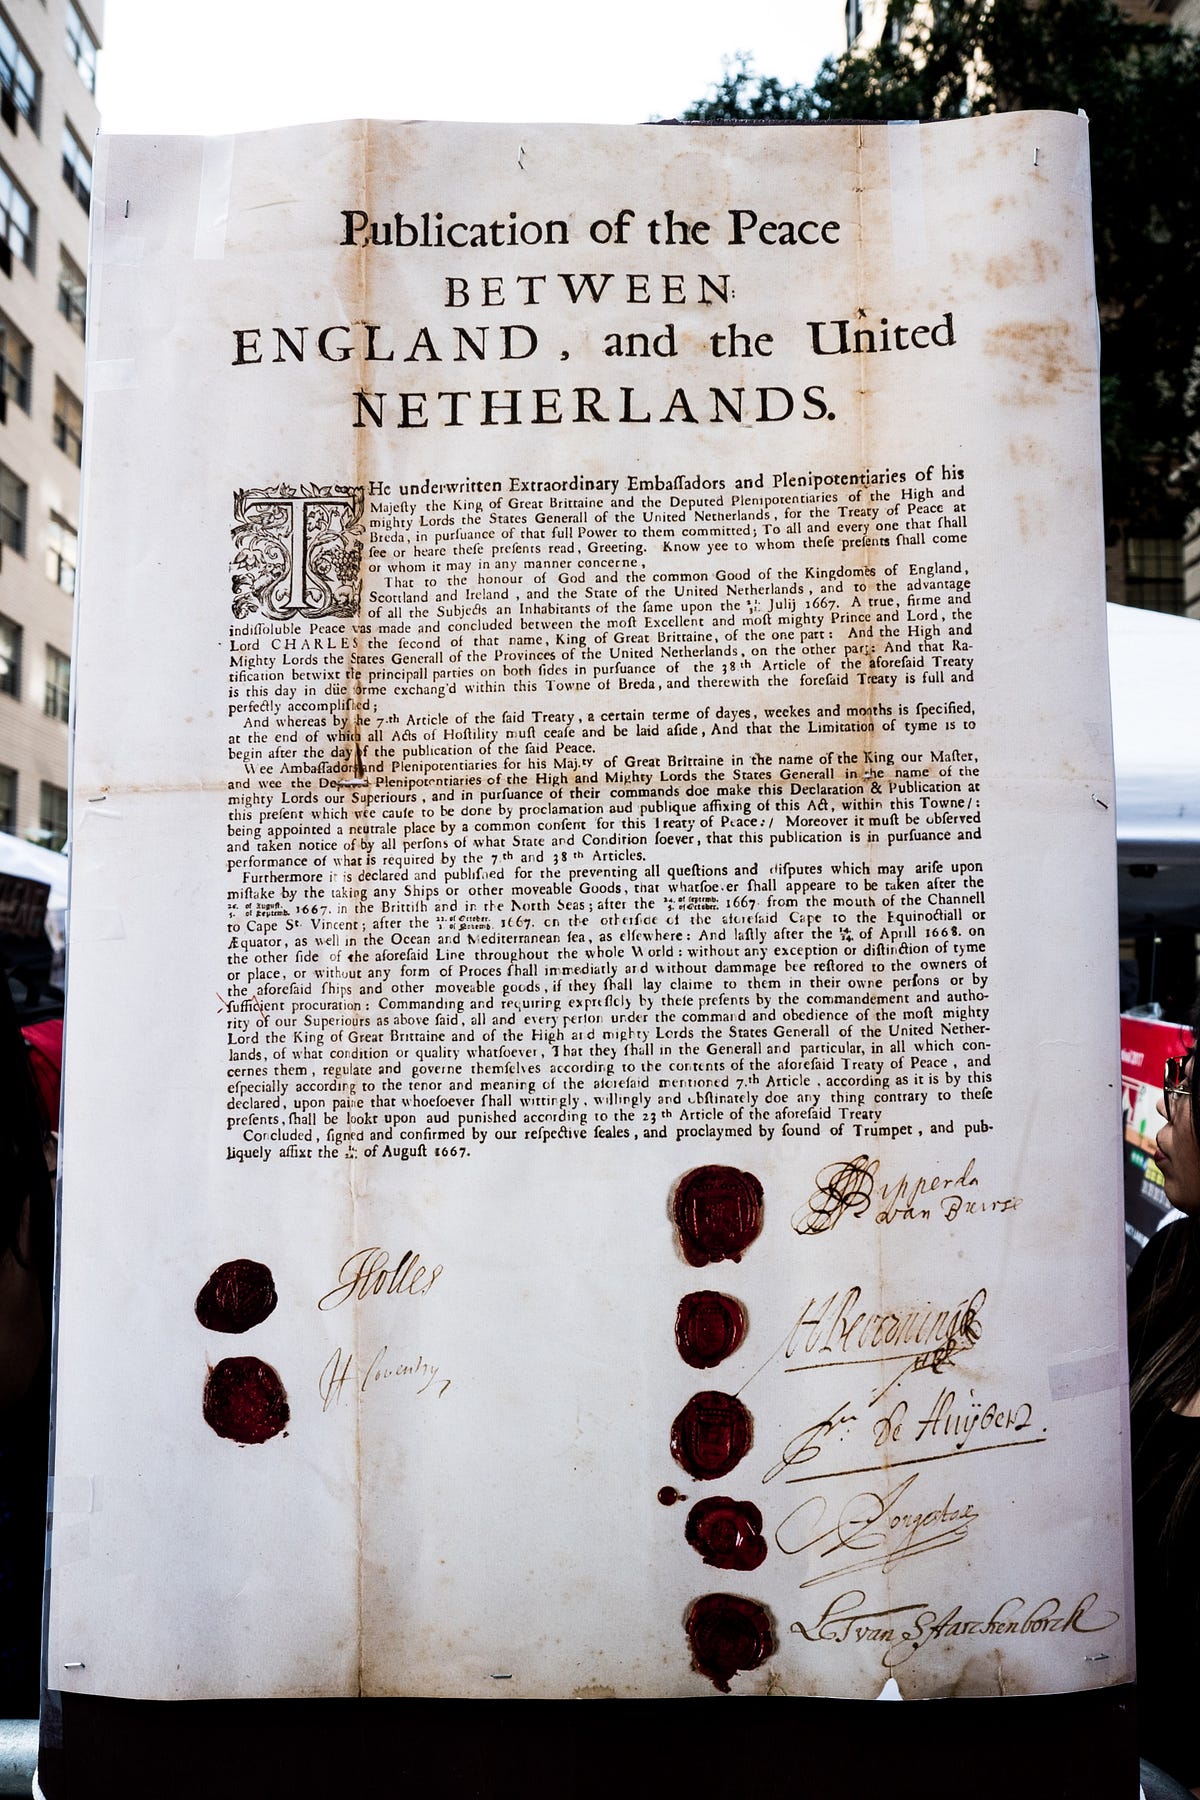 Publication of the Peace
BETWEEN
ENGLAND, and the United
NETHERLANDS.
THe underwritten Extraordinary Embaſſadors and Plenipotentiaries of his
Majeſty the King of Great Brittaine and the Deputed Plenipotentiaries of the High and
mighty Lords the States Generall of the United Netherlands, for the Treaty of Peace at
Breda, in purſuance of that full Power to them committed; To all and every one that ſhall
ſee or heare theſe preſents read, Greeting. Know yee to whom theſe preſents ſhall come
or whom it may in any manner concerne,
That to the honour of God and the common Good of the Kingdomes of England,
Scottland and Ireland, and the State of the United Netherlands, and to the advantage
of all the Subjects an Inhabitants of the ſame upon the Julij 1667. A true, firme and
indiſſoluble Peace was made and concluded between the moſt Excellent and moſt mighty Prince and Lord, the
Lord CHARLES the ſecond of that name, King of Great Brittaine, of the one part: And the High and
Mighty Lords the States Generall of the Provinces of the United Netherlands, on the other part: And that Ra-
tification betwixt the principall parties on both ſides in purſuance of the 38th Article of the aforeſaid Treaty
is this day in düe forme exchang'd within this Towne of Breda, and therewith the foreſaid Treaty is full and
perfectly accompliſhed;
And whereas by the 7.th Article of the ſaid Treaty, a certain terme of dayes, weekes and months is ſpecified,
at the end of which all Acts of Hoſtility muſt ceaſe and be laid aſide, And that the Limitation of tyme is to
begin after the day of the publication of the ſaid Peace.
Wee Ambaſſadors and Plenipotentiaries for his Maj.ty of Great Brittaine in the name of the King our Maſter,
and wee the Deputed Plenipotentiaries of the High and Mighty Lords the States Generall in the name of the
mighty Lords our Superiours, and in purſuance of their commands doe make this Declaration & Publication at
this preſent which wee cauſe to be done by proclamation aud publique affixing of this Act, within this Towne/:
being appointed a neutrale place by a common conſent for this Treaty of Peace:/ Moreover it muſt be obſerved
and taken notice of by all perſons of what State and Condition ſoever, that this publication is in purſuance and
performance of what is required by the 7.th and 38 th Articles.
Furthermore it is declared and publiſhed for the preventing all queſtions and diſputes which may ariſe upon
miſtake by the taking any Ships or other moveable Goods, that whatſoever ſhall appeare to be taken after the
of Auguſt. of Septemb. 1667. in the Brittiſh and in the North Seas; after the of Septemb. of October. 1667. from the mouth of the Channell
to Cape St. Vincent; after the of October. of Novemb. 1667. on the otherſide of the aforeſaid Cape to the Equinoctiall or
Æquator, as well in the Ocean and Mediterranean ſea, as elſewhere: And laſtly after the of Aprill 1668. on
the other ſide of the aforeſaid Line throughout the whole World: without any exception or diſtinction of tyme
or place, or without any form of Proces ſhall immediatly and without dammage bee reſtored to the owners of
the aforeſaid ſhips and other moveable goods, if they ſhall lay claime to them in their owne perſons or by
ſufficient procuration: Commanding and requiring expreſſely by theſe preſents by the commandement and autho-
rity of our Superiours as above ſaid, all and every perſon under the command and obedience of the moſt mighty
Lord the King of Great Brittaine and of the High and mighty Lords the States Generall of the United Nether-
lands, of what condition or quality whatſoever, That they ſhall in the Generall and particular, in all which con-
cernes them, regulate and governe themſelves according to the contents of the aforeſaid Treaty of Peace, and
eſpecially according to the tenor and meaning of the aforeſaid mentioned 7.th Article, according as it is by this
declared, upon paine that whoeſoever ſhall wittingly, willingly and obſtinately doe any thing contrary to theſe
preſents, ſhall be lookt upon aud punished according to the 23 th Article of the aforeſaid Treaty
Concluded, ſigned and confirmed by our reſpective ſeales, and proclaymed by ſound of Trumpet, and pub-
liquely affixt the of Auguſt 1667.
Ripperda
van Buirse
Holles
H Beverningk
H Coventry
de Huÿbert
Jongestal
L T van Starckenborck